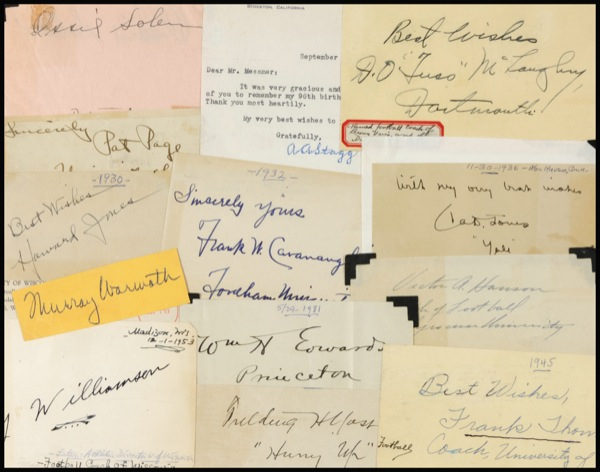 Ossie Solem
STOCKTON, CALIFORNIA
September
Dear Mr. Messner:
It was very gracious and
of you to remember my 90th birth
Thank you most heartily.
My very best wishes to
Gratefully,
A A Stagg
Best Wishes
D.O. "Tuss" McLaughry,
Dartmouth!
Sincerely
Pat Page
-1930-
Best Wishes
Howard Jones
-1932-
Sincerely yours
Frank W. Cavanaugh
Fordham
11-30-1936 - New Haven, Conn.
With my very best wishes
"Yale"
Victor A. Hanson
of Football
University
Murray Warmath
Madison, Wis.
12-1-1953
Williamson
Football Coach of
5/29-1931
Wm H Edwards
Princeton
Fielding H Yost
"Hurry Up"
Football
1945
Best Wishes,
Frank
Coach University of